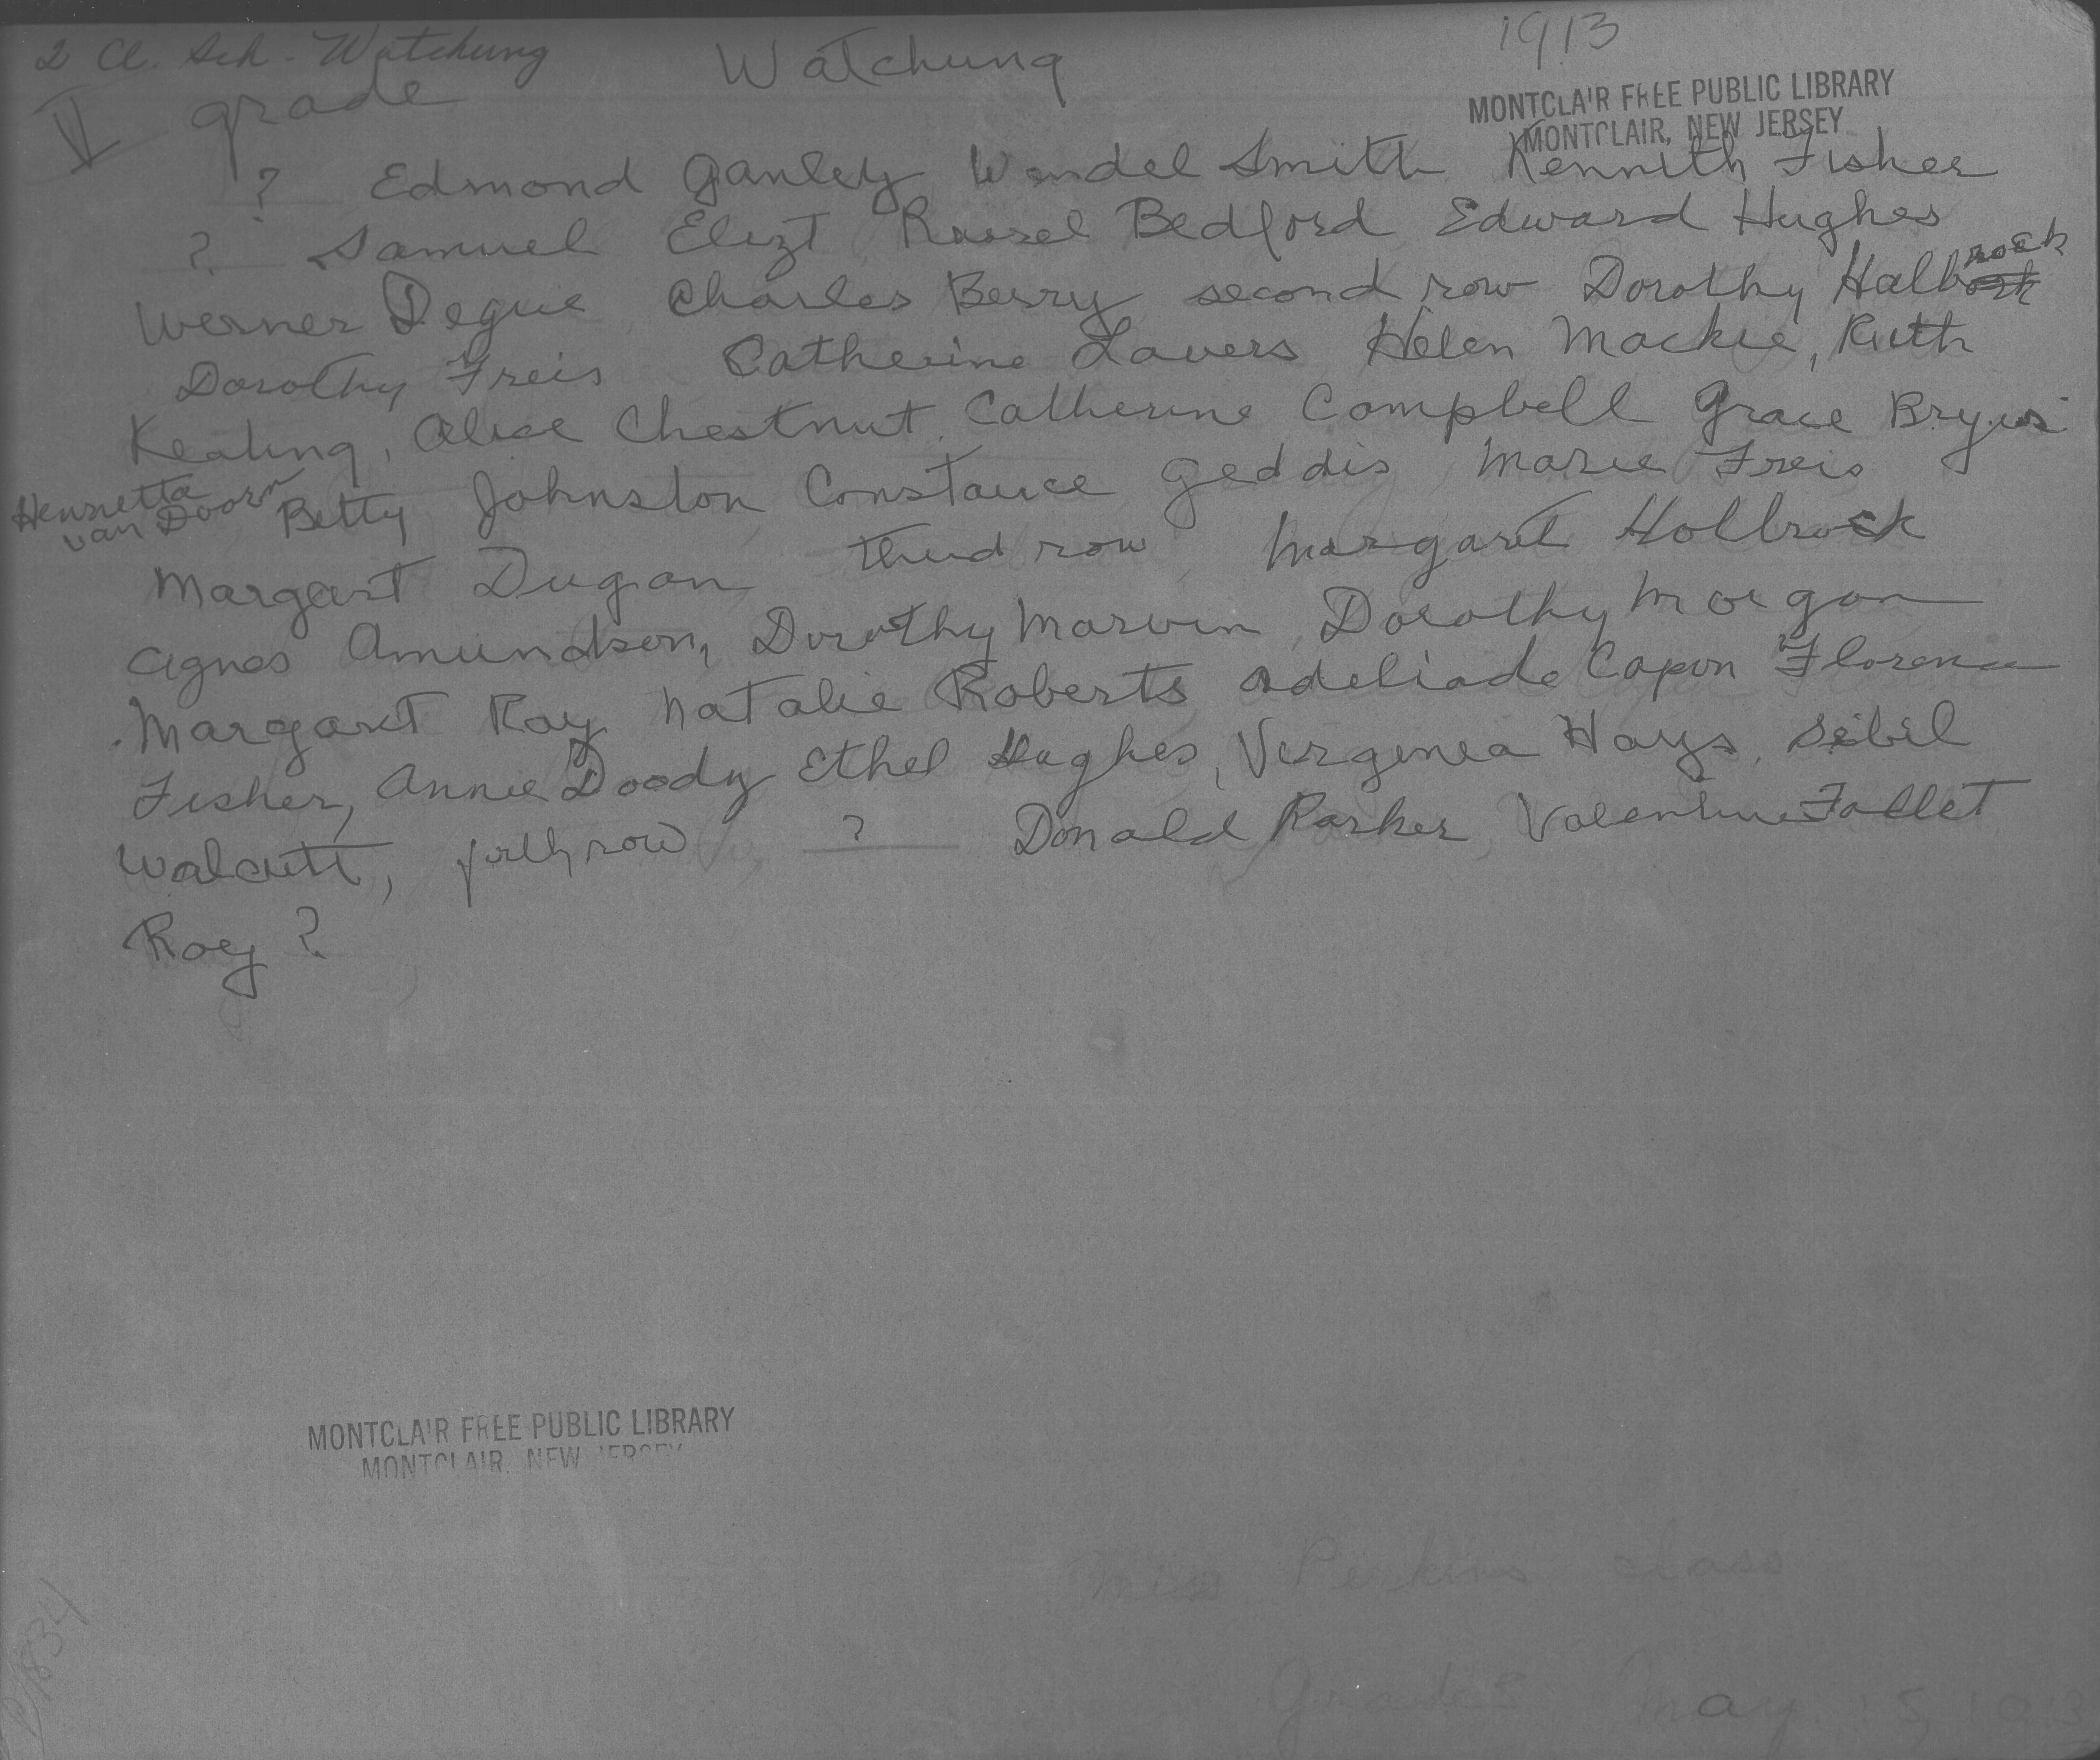 2 Cl. Sch. - Watchung
Watchung
1913
V grade
MONTCLAIR FREE PUBLIC LIBRARY
MONTCLAIR, NEW JERSEY
? Edmond Ganley Wendel Smith Kennith Fisher
? Samuel Elizt Russel Bedford Edward Hughes
Werner Degue Charles Berry second row Dorothy Halbrock
Dorothy Freis Catherine Lavers Helen Mackie, Ruth
Keating, Alice Chestnut, Catherine Campbell Grace
Henrietta van Doorn Betty Johnston Constance Geddis Marie Freis
Margaret Dugan third row Margaret Holbrock
Agnes Amundsen, Dorothy Marvin, Dorothy Morgan
Margaret Ray Natalie Roberts Adeliade Capon Florence
Fisher, Annie Doody Ethel Hughes, Verginea Hays, Sibil
Walcutt, forth row ? Donald Parker, Valentine Fallet
Roy ?
MONTCLAIR FREE PUBLIC LIBRARY
MONTCLAIR, NEW JERSEY
Miss Perkins class
May 15